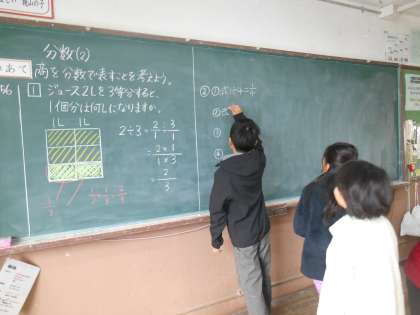 分数(2)
めあて
商を分数で表すことを考えよう。
56
1 ジュース2Lを3等分すると、
1個分は何Lになりますか。
1L 1L
2÷3=2/1÷3/1
=2×1/1×3
2/3
1/3
1/3 1/3 2/3
② ①式1÷4=1/4
②式
③
④